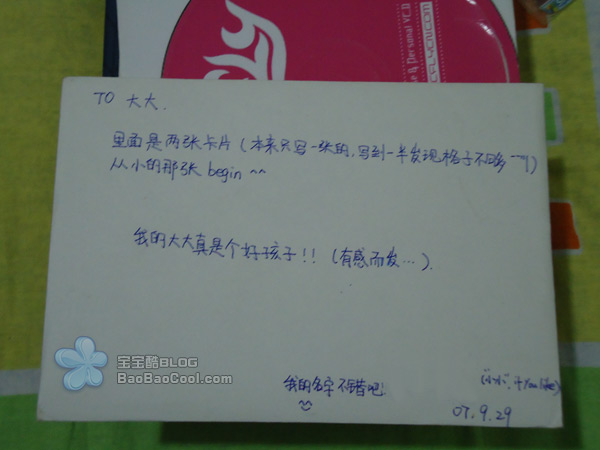 & Personal VCD
TO 大大.
里面是两张卡片(本来只写一张的,写到一半发现格子不够 ￣￣||)
从小的那张 begin ^^
我的大大真是个好孩子!!(有感而发…).
宝宝酷BLOG
BaoBaoCool.com
我的名字不错吧!
("小小", if You like)
07.9.29